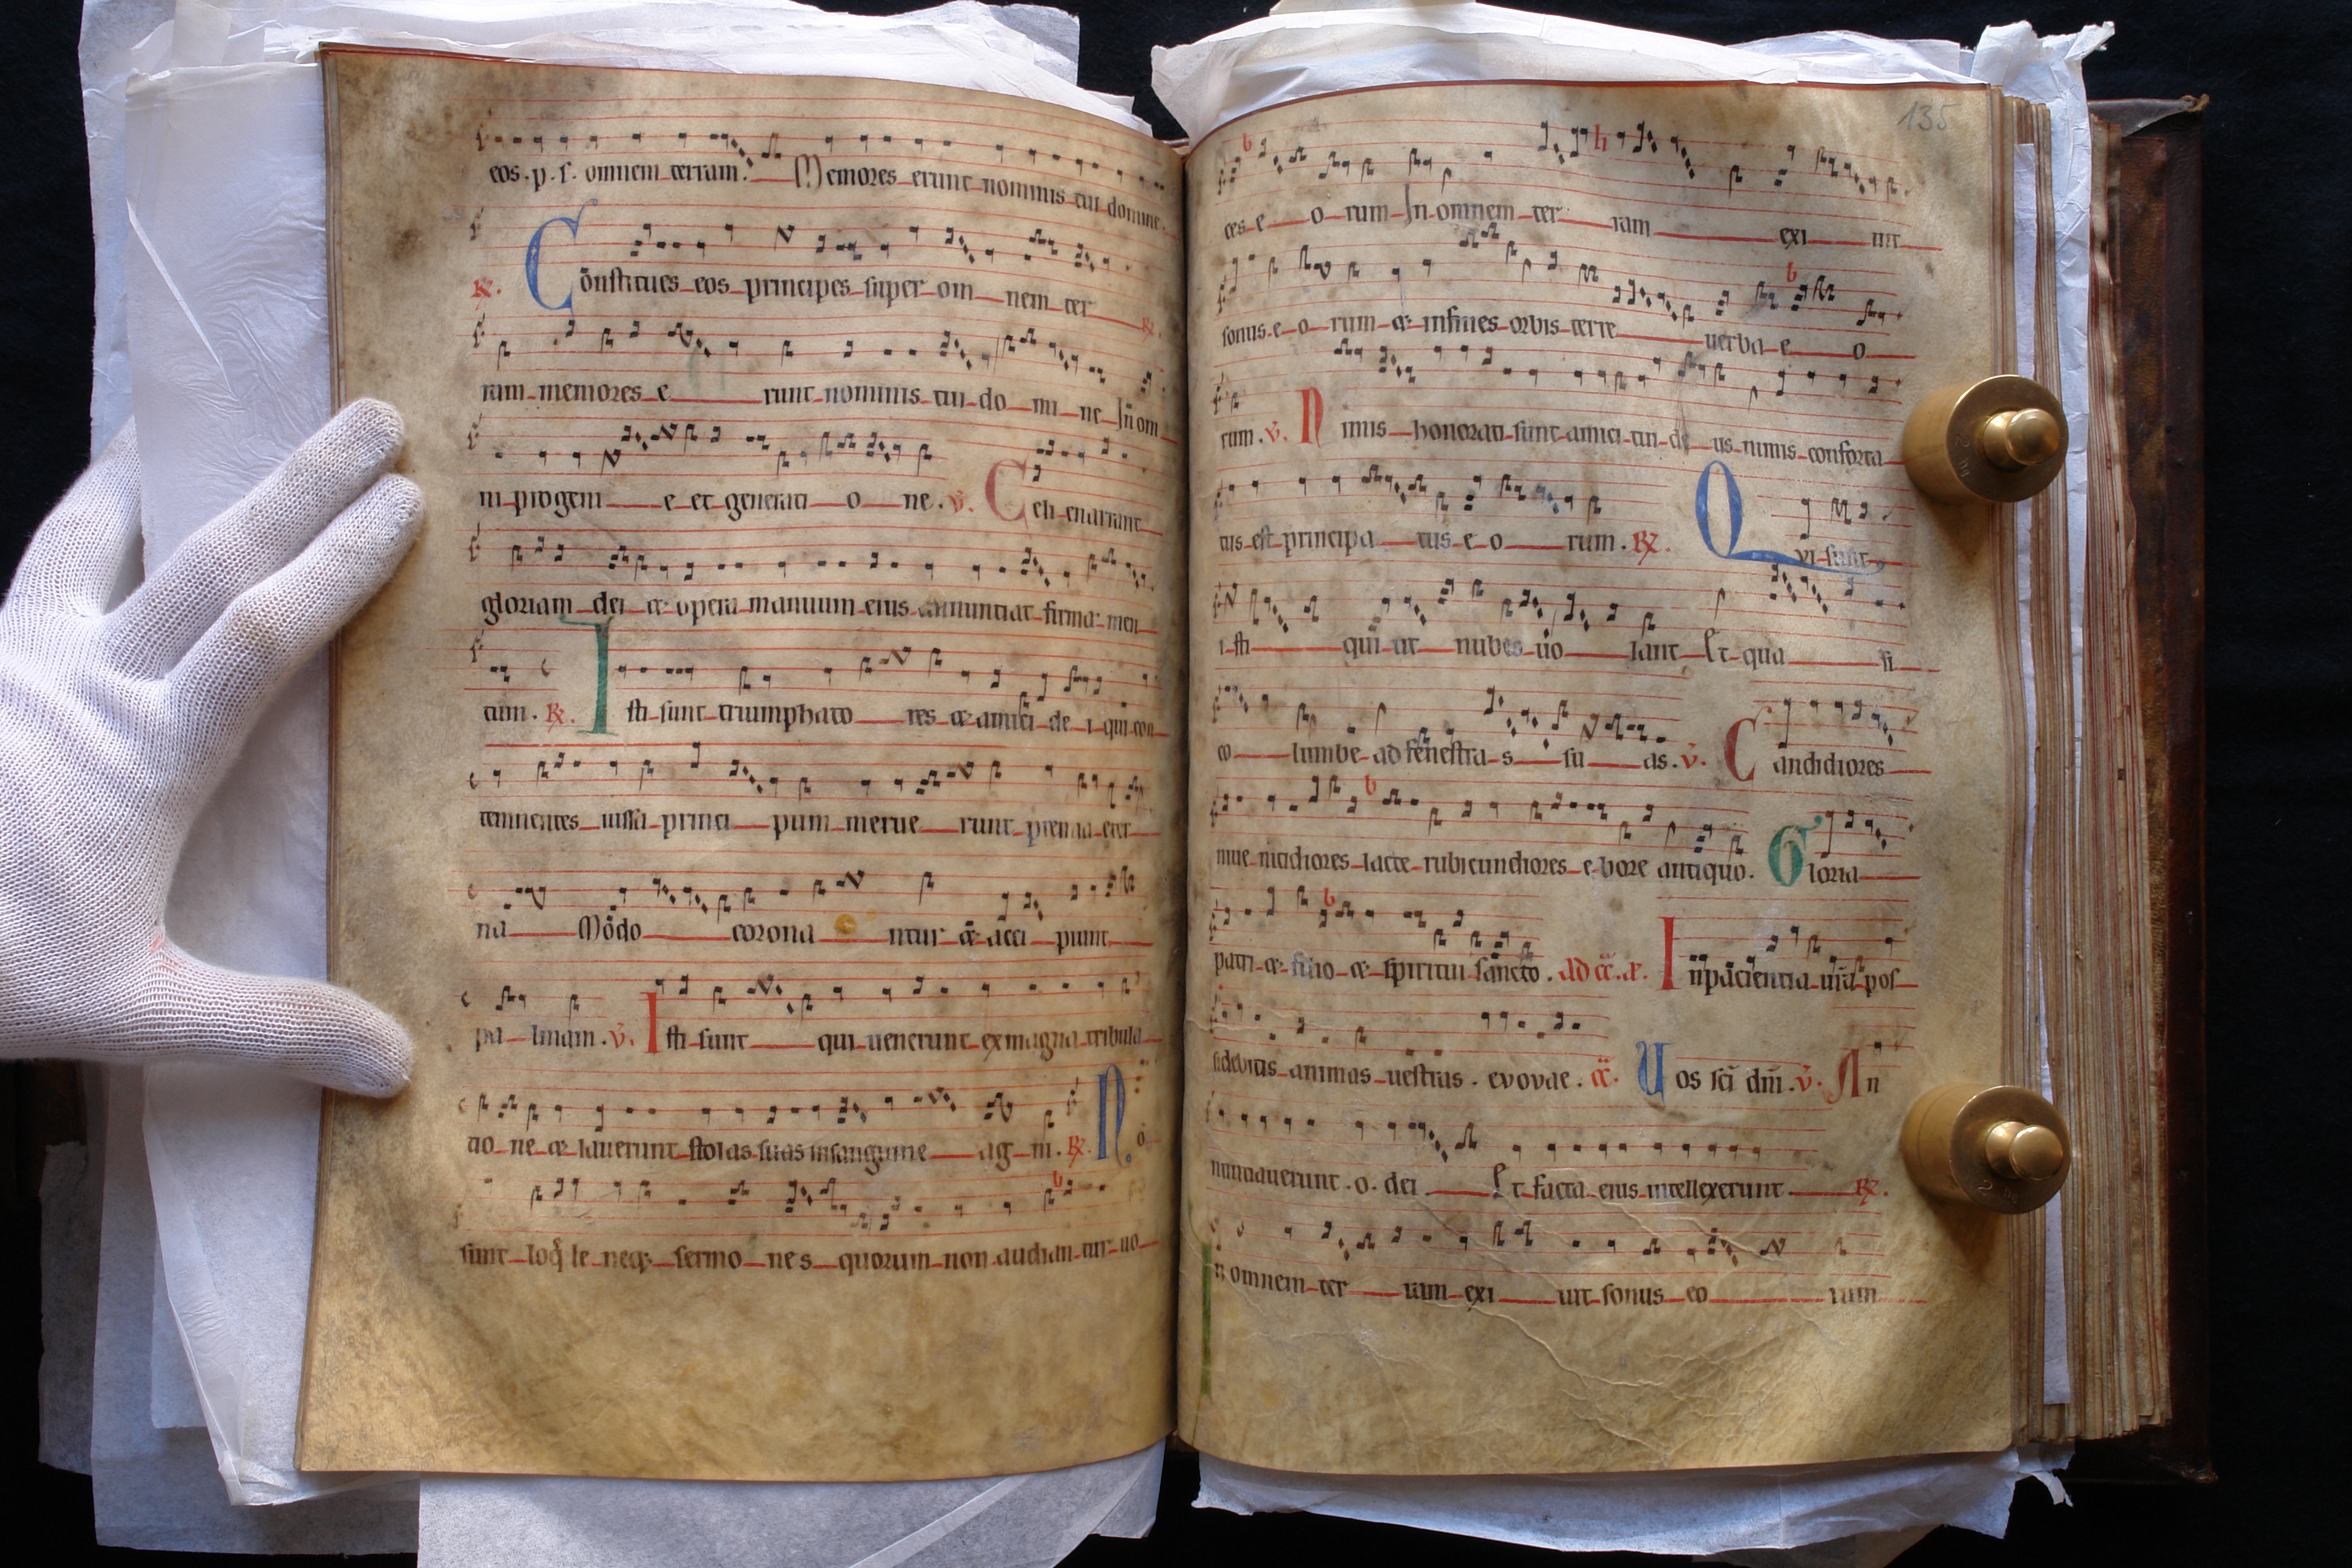 eos. p. s. omnem terram. Memores erunt nominis tui domine.
℟. Constitues eos principes super om nem ter
ram memores e runt nominis tui do mi ne In om
ni progeni e et generati o ne. v. Celi enarrant
gloriam dei & opera manuum eius annuntiat firma men
tum. ℟. Isti sunt triumphato res & amici de i qui con
tennentes iussa princi pum merue runt premia eter
na Modo corona ntur & acci piunt
pa lmam. v. Isti sunt qui uenerunt ex magna tribula
tio ne & lauerunt stolas suas in sanguine ag ni. ℟. No
sunt loq̄ le neq; sermo nes quorum non audian tur uo
135
ces e o rum In omnem ter ram exi uit
sonus e o rum & in fines orbis terre uerba e o
rum. v. Nimis honorati sunt amici tui de us nimis conforta
tus est principa tus e o rum. ℟. Qui sunt
i sti qui ut nubes uo lant Et qua si
co lumbe ad fenestra s su as. v. Candidiores
niue nitidiores lacte rubicundiores e bore antiquo. Gloria
patri & filio & spiritui sancto. In paciencia ur̄a pos
sidebitis animas uestras. evovae. Uos sc̄i dn̄i. v. An
nuntiauerunt. o. dei Et facta eius intellexerunt ℟.
In omnem ter ram exi uit sonus eo rum